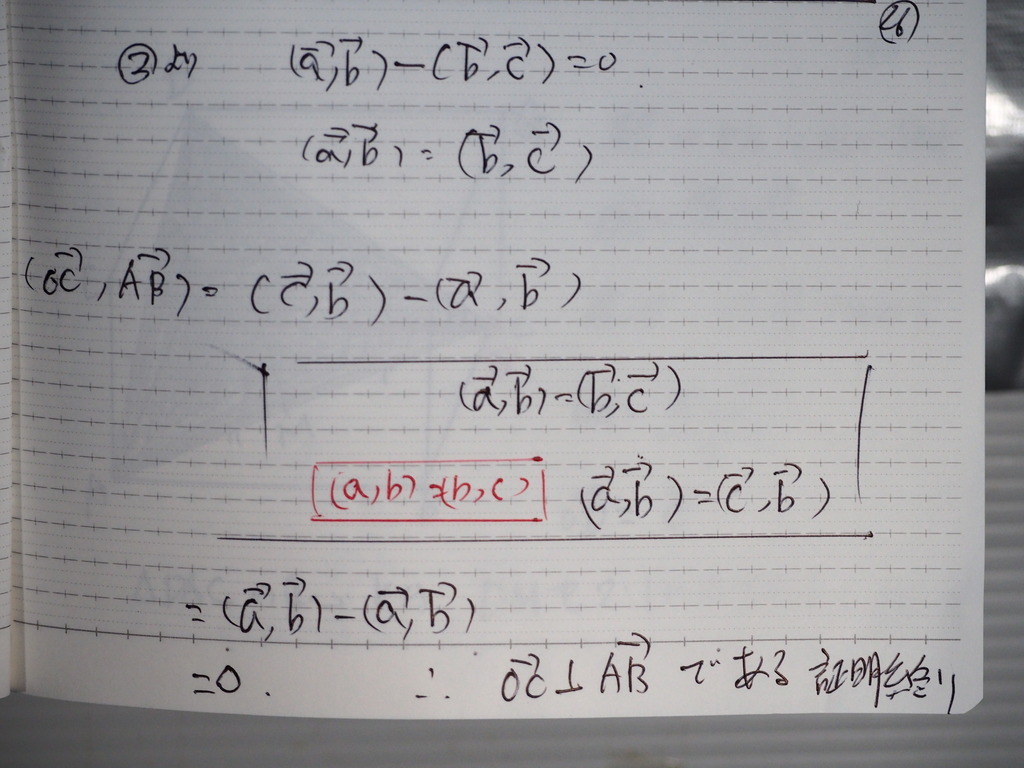 26
③より (a⃗,b⃗)-(b⃗,c⃗)=0
(a⃗,b⃗)=(b⃗,c⃗)
(OC⃗,AB⃗)=(c⃗,b⃗)-(a⃗,b⃗)
(a⃗,b⃗)=(b⃗,c⃗)
(a,b)=(b,c) (a⃗,b⃗)=(c⃗,b⃗)
=(a⃗,b⃗)-(a⃗,b⃗)
=0. ∴ OC⃗⊥AB⃗ である 証明終り